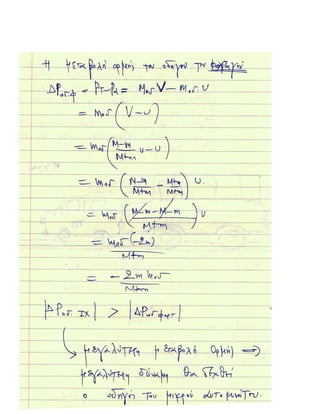 Η μεταβολή ορμής του οδηγού του φορτηγού
ΔP οδ.φ = Pτ - Pα = mοδ V - mοδ υ
= mοδ (V - υ)
= mοδ (M-m/M+m υ - υ)
= mοδ (M-m/M+m - M+m/M+m) υ
= mοδ (M-m-M-m/M+m) υ
= mοδ (-2m)/M+m
= - 2m mοδ/M+m
|ΔP οδ. ΙΧ| > |ΔP οδ φορτ|
μεγαλύτερη μεταβολή ορμής ⇒
μεγαλύτερη δύναμη θα δεχθεί
ο οδηγός του μικρού αυτοκινήτου.